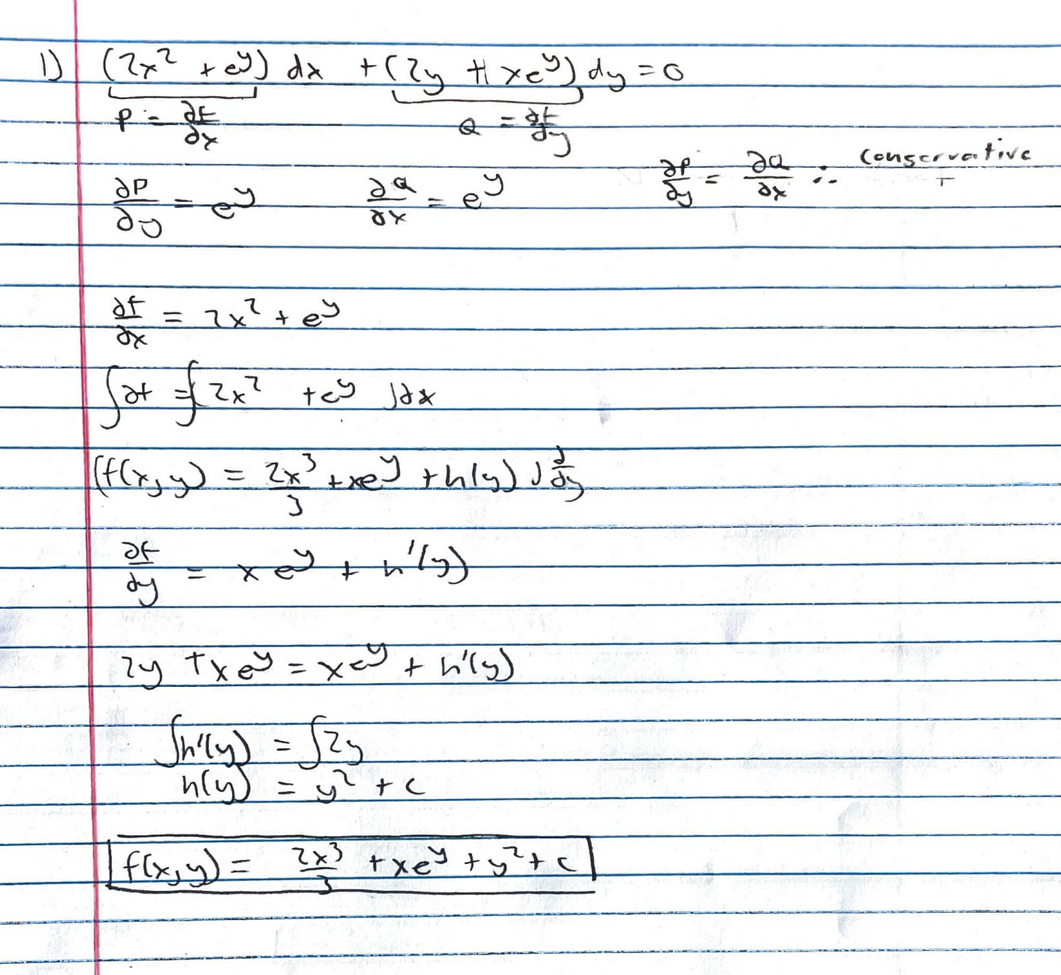 1) (2x² + e^y) dx + (2y + xe^y) dy = 0
P = ∂f/∂x Q = ∂f/∂y
∂P/∂y = e^y ∂Q/∂x = e^y ∂P/∂y = ∂Q/∂x ∴ conservative
∂f/∂x = 2x² + e^y
∫∂f = ∫(2x² + e^y)dx
(f(x,y) = 2x³/3 + xe^y + h(y)) d/dy
∂f/∂y = xe^y + h'(y)
2y + xe^y = xe^y + h'(y)
∫h'(y) = ∫2y
h(y) = y² + c
f(x,y) = 2x³/3 + xe^y + y² + c